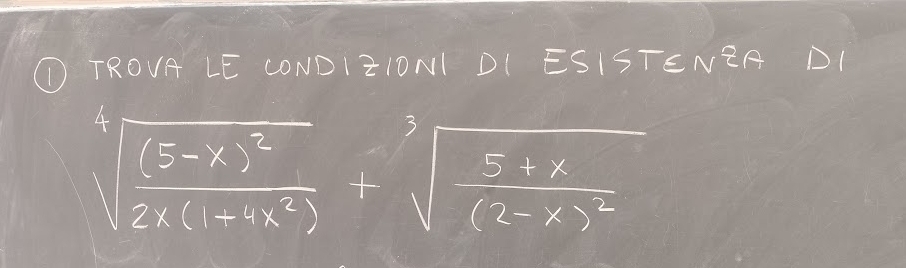 ① TROVA LE CONDIZIONI DI ESISTENZA DI
⁴√((5-x)² / (2x(1+4x²))) + ³√((5+x) / (2-x)²)